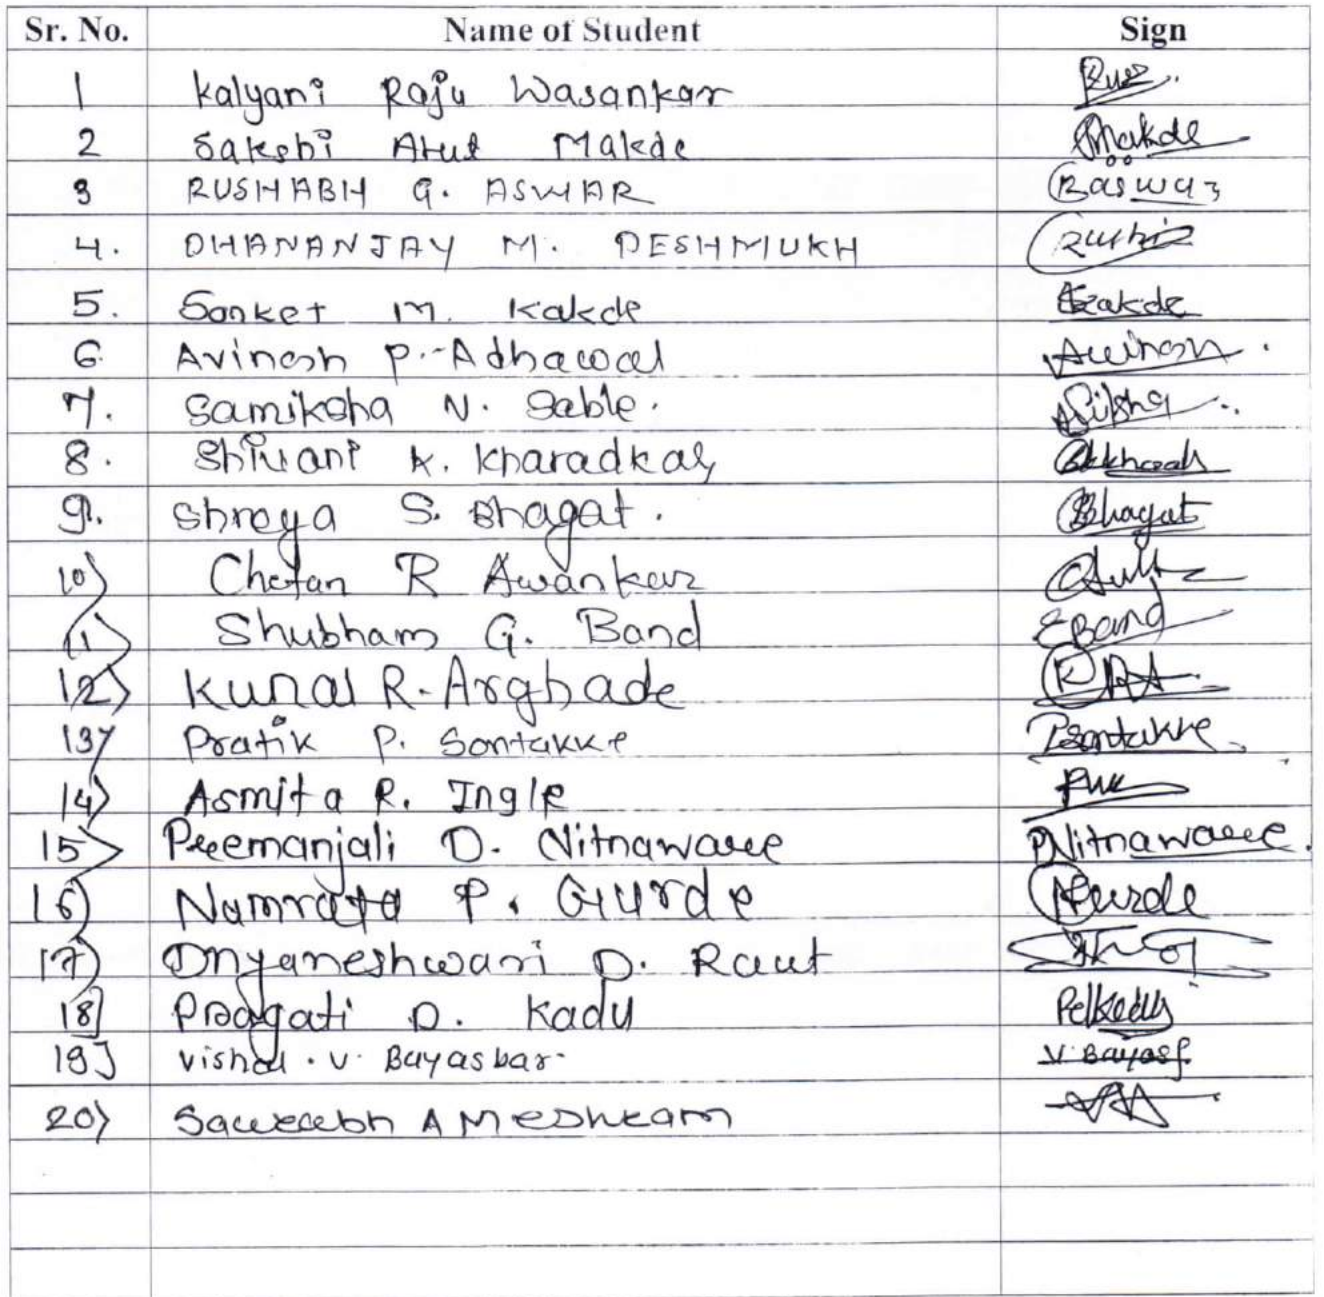 Sr. No. Name of Student Sign
1 Kalyani Raju Wasankar
2 Sakshi Atul Makde Makde
3 RUSHABH G. ASWAR Raswar
4. DHANANJAY M. DESHMUKH Rushi
5. Sanket M. Kakde Skakde
6 Avinash P. Adhawal Avinash
7. Samiksha N. Sable.
8. Shivani K. Kharadkar
9. Shreya S. Bhagat. Bhagat
10) Chetan R Awankar
11) Shubham G. Band Band
12) Kunal R. Arghade
13) Pratik P. Sontakke Psontakke
14) Asmita R. Ingle
15> Preemanjali D. Nitnaware PNitnaware.
16) Namrata P. Gurde Gurde
17) Dnyaneshwari D. Raut
18] Pragati D. Kadu
19] Vishal . V. Bayasbar.
20) Saurabh A Meshram